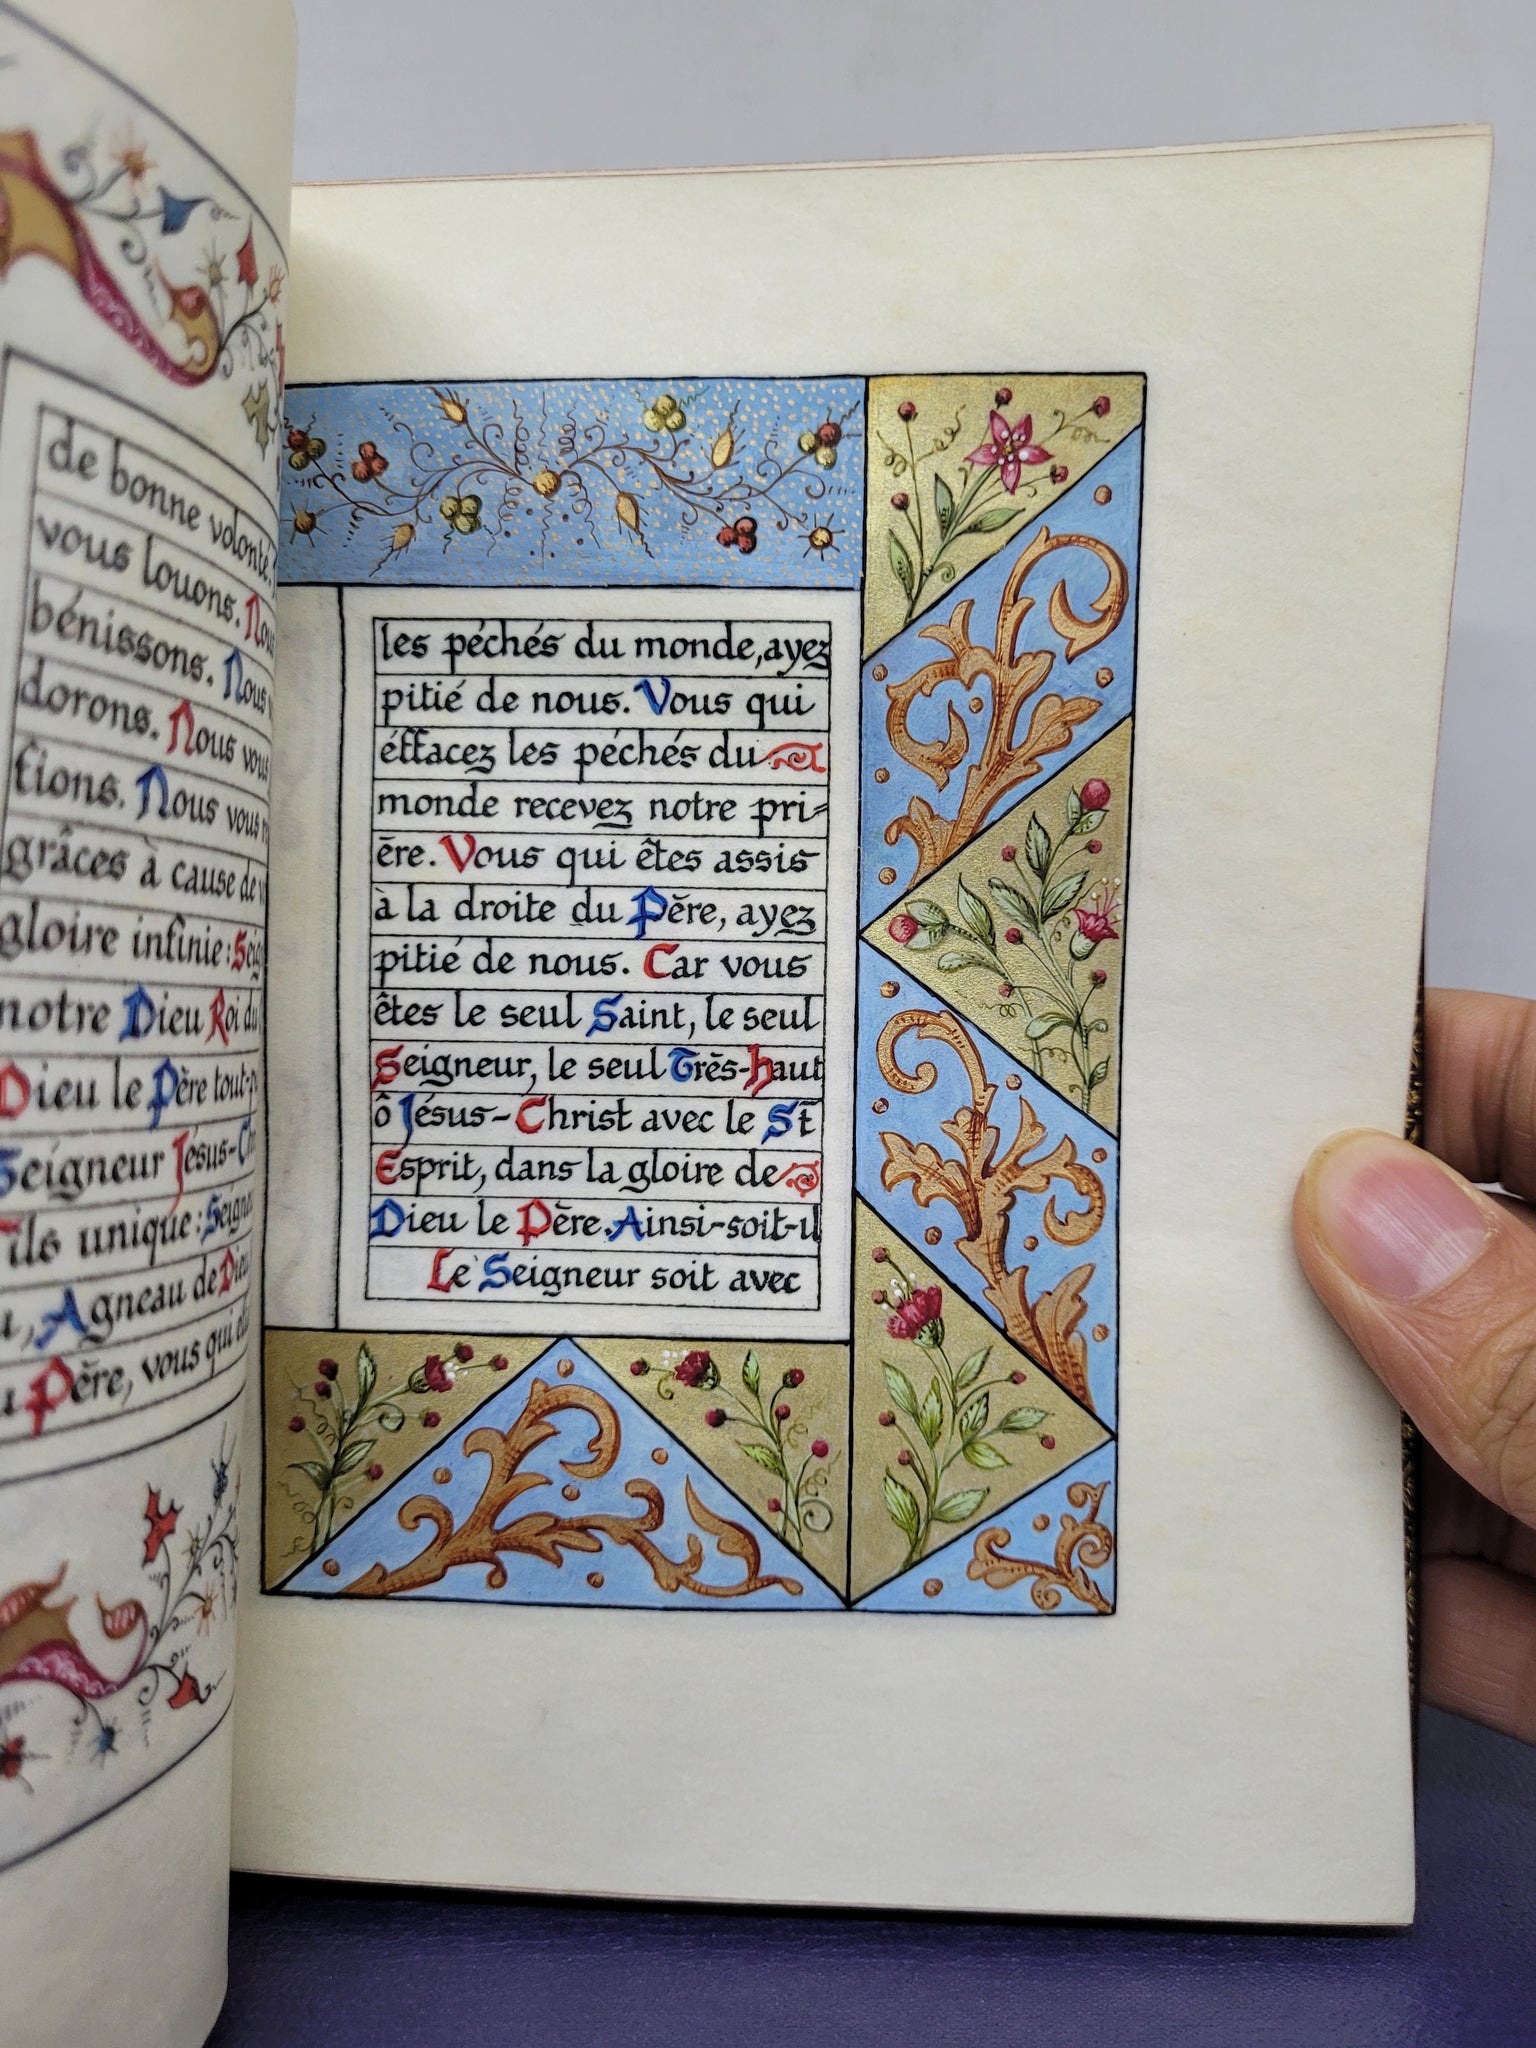 de bonne volonté.
vous louons. Nous
bénissons. Nous
dorons. Nous vous
tions. Nous vous
grâces à cause de
gloire infinie: Seig
notre Dieu Roi du
Dieu le Père tout-p
Seigneur Jésus-Ch
ils unique: Seigne
Agneau de Dieu
Père, vous qui
les péchés du monde, ayez
pitié de nous. Vous qui
éffacez les péchés du
monde recevez notre pri-
ère. Vous qui êtes assis
à la droite du Père, ayez
pitié de nous. Car vous
êtes le seul Saint, le seul
Seigneur, le seul Très-haut
ô Jésus-Christ avec le St
Esprit, dans la gloire de
Dieu le Père. Ainsi-soit-il
Le Seigneur soit avec